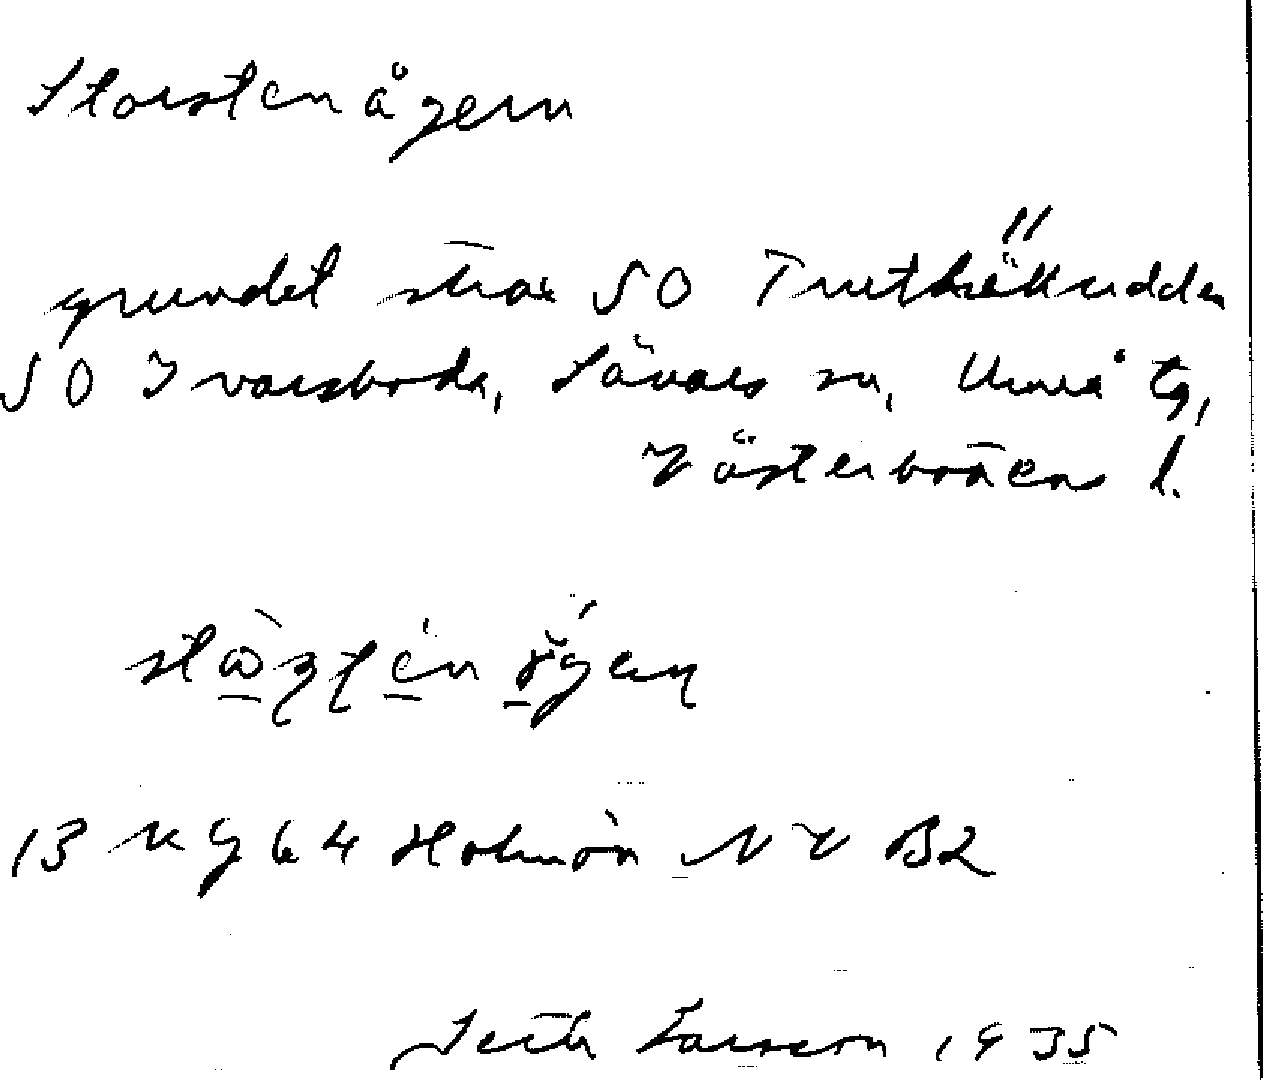 Storstenågern
grundet strax SO Truthälludden
SO Ivarsboda, Sävars sn, Umeå tg,
Västerbottens l.
13 K 9 g 64 Holmön NV B2
Seth Larsson 1935